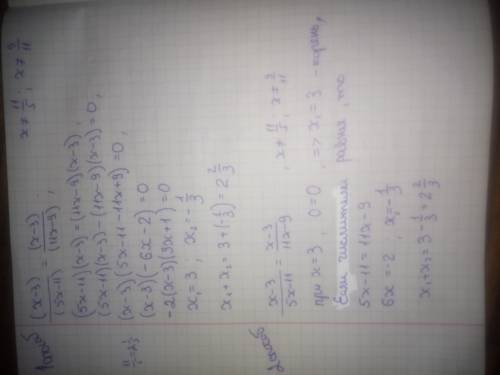 1 способ
(x-3)/(5x-11) = (x-3)/(11x-9) , x ≠ 11/5 ; x ≠ 9/11
(5x-11)(x-3) = (11x-9)(x-3),
(5x-11)(x-3) - (11x-9)(x-3) = 0,
(x-3)(5x-11-11x+9) = 0,
(x-3)(-6x-2) = 0
-2(x-3)(3x+1) = 0
x₁ = 3 , x₂ = -1/3
x₁ + x₂ = 3 + (-1/3) = 2 2/3
2 способ
x-3/5x-11 = x-3/11x-9 , x ≠ 11/5 ; x ≠ 9/11
при x = 3 , 0 = 0 , => x₁ = 3 - корень,
Если числители равны , то
5x-11 = 11x-9
6x = -2 , x₂ = -1/3
x₁+x₂ = 3 - 1/3 = 2 2/3